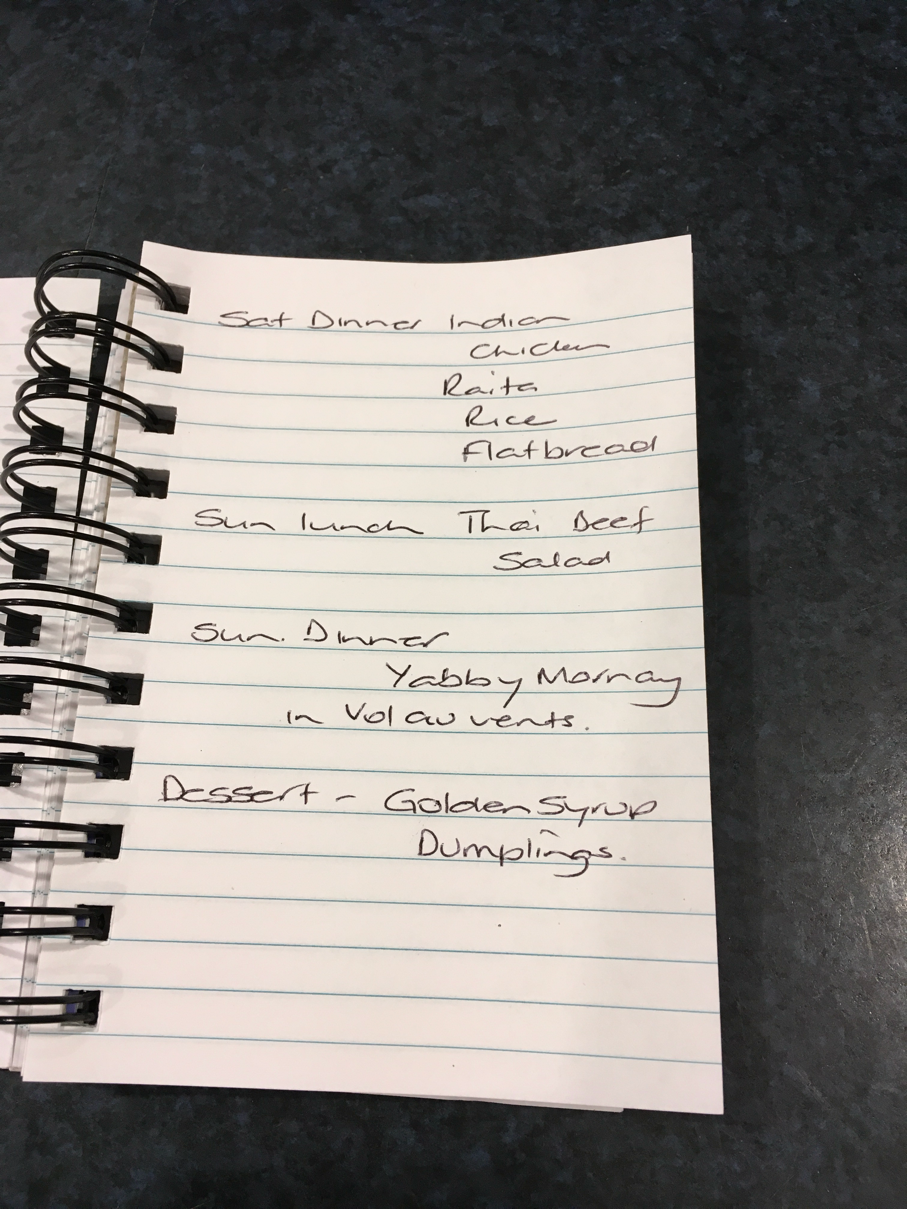 Sat Dinner Indian
Chicken
Raita
Rice
Flatbread
Sun lunch Thai Beef
Salad
Sun. Dinner
Yabby Mornay
in Vol au vents.
Dessert - Golden Syrup
Dumplings.